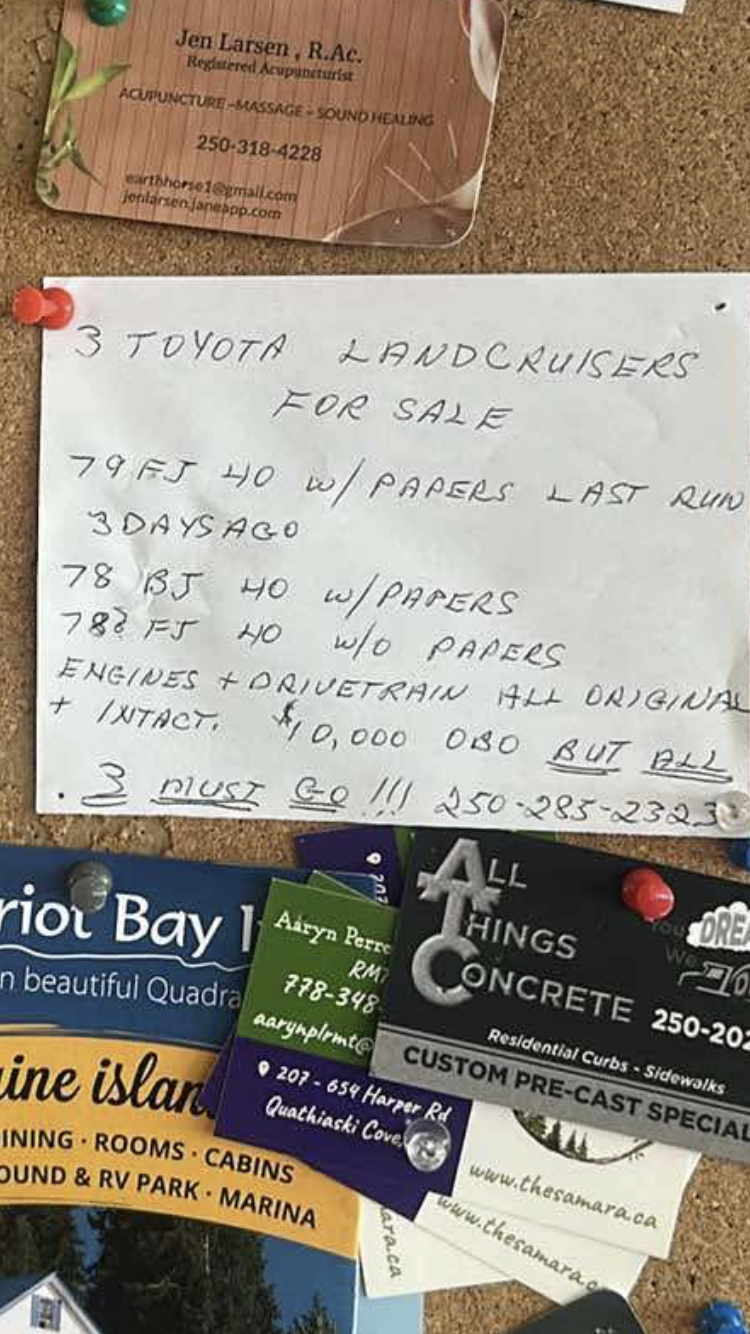 Jen Larsen , R.Ac.
Registered Acupuncturist
ACUPUNCTURE -MASSAGE - SOUND HEALING
250-318-4228
earthhorse1@gmail.com
jenlarsen.janeapp.com
3 TOYOTA LANDCRUISERS
FOR SALE
79 FJ 40 W/PAPERS LAST RUN
3 DAYS AGO
78 BJ 40 W/PAPERS
78 FJ 40 W/O PAPERS
ENGINES + DRIVETRAIN ALL ORIGINAL
+ INTACT. $10,000 OBO BUT ALL
. 3 MUST GO !!! 250-285-2323
riot Bay I
n beautiful Quadra
ine islan
INING · ROOMS · CABINS
OUND & RV PARK · MARINA
Aaryn Perre
RMT
778-348-
aarynplrmt@
207 - 654 Harper Rd
Quathiaski Cove,
ALL
THINGS
CONCRETE
You DREA
We
250-202
Residential Curbs - Sidewalks
CUSTOM PRE-CAST SPECIAL
www.thesamara.ca
www.thesamara.c
mara.ca